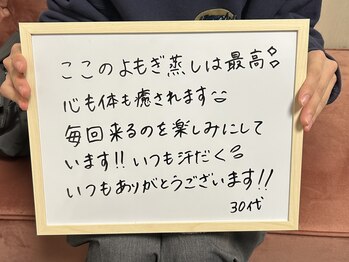 ここのよもぎ蒸しは最高
心も体も癒されます
毎回来るのを楽しみにして
います!!いつも汗だく
いつもありがとうございます!!
30代